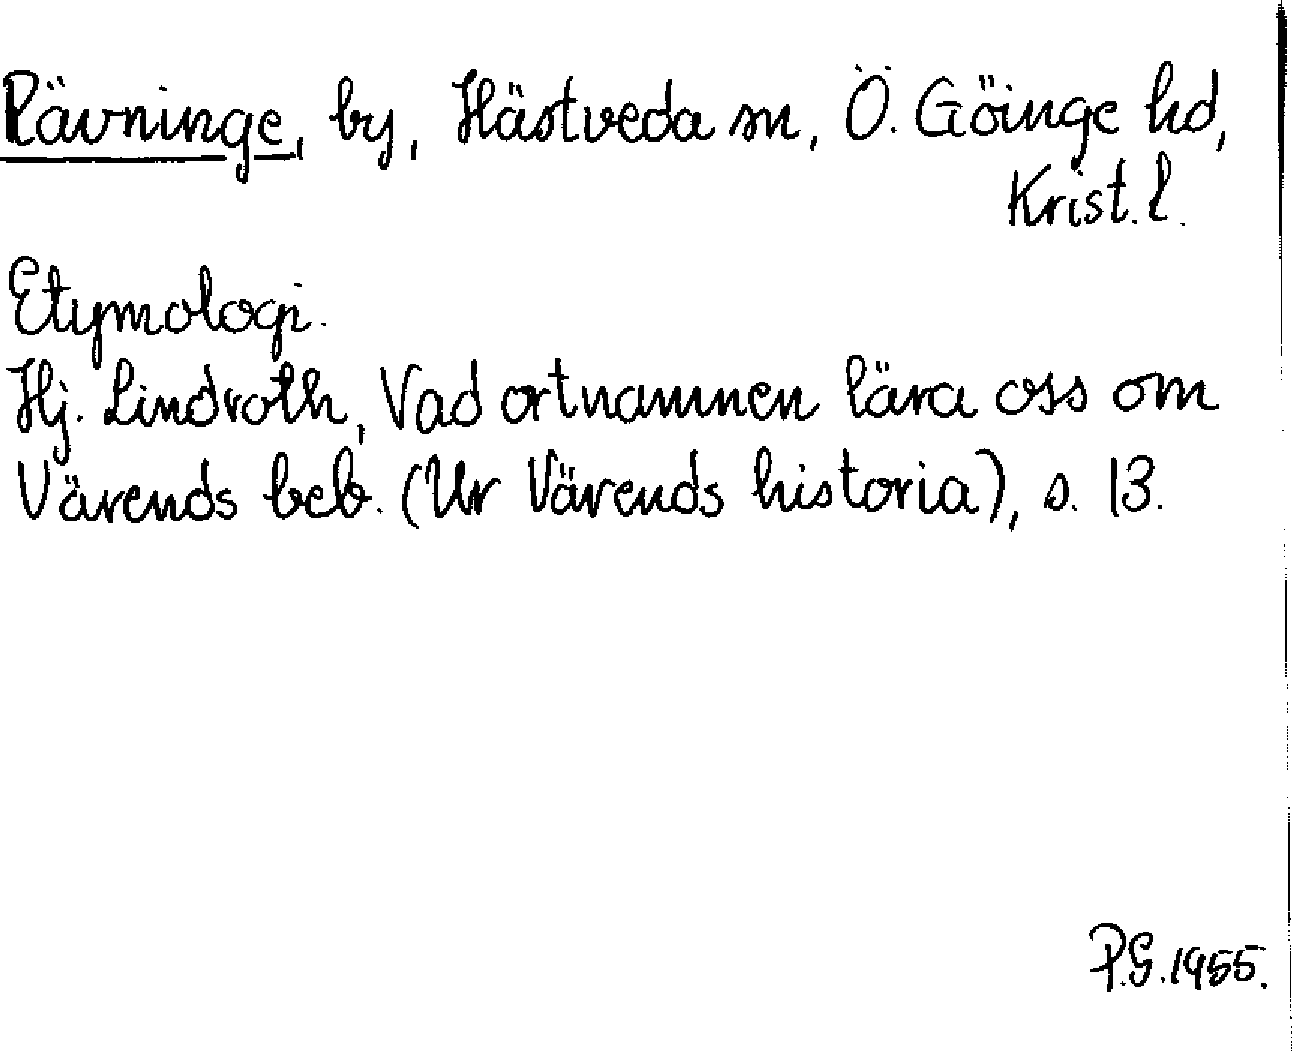 Rävninge, by, Hästveda sn, Ö. Göinge hd,
Krist. l.
Etymologi.
Hj. Lindroth, Vad ortnamnen lära oss om
Värends beb. (Ur Värends historia), s. 13.
P.G. 1955.